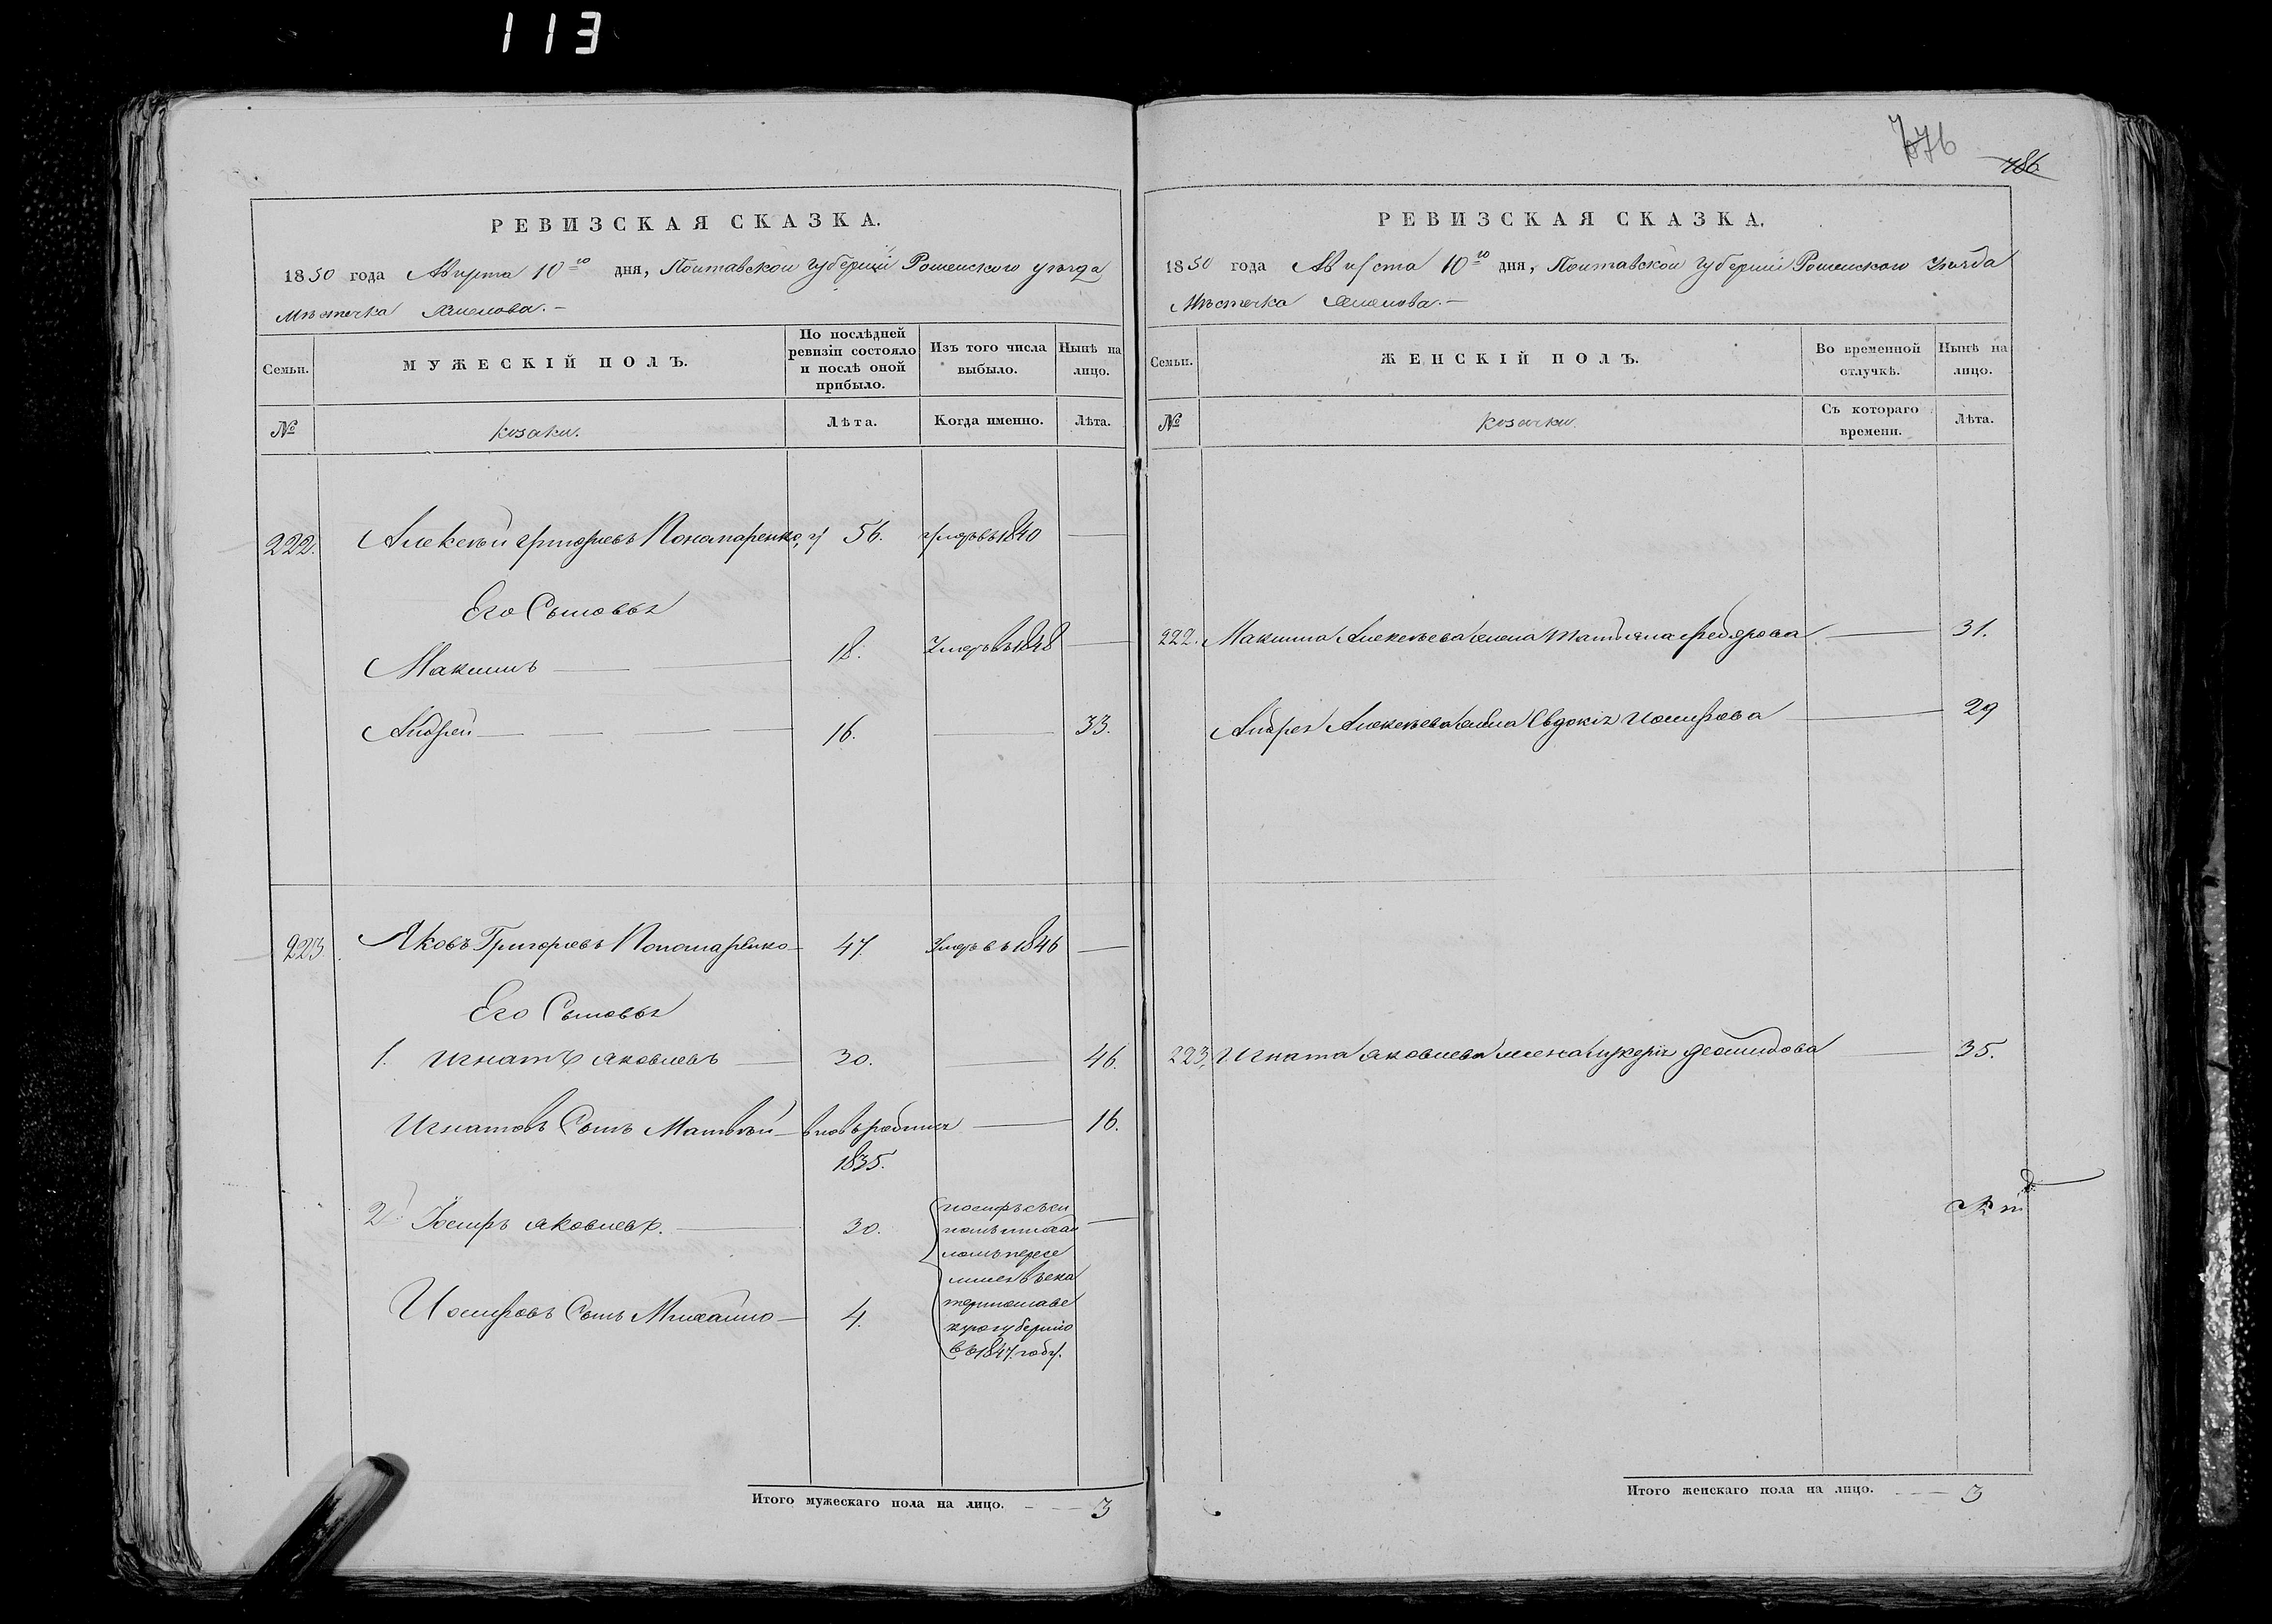 113
776
786
РЕВИЗСКАЯ СКАЗКА.
1850 года Августа 10го дня, Полтавской губерніи Роменского уѣзда
Мѣстечка
Семьи.
МУЖЕСКІЙ ПОЛЪ.
По послѣдней ревизіи состояло и послѣ оной прибыло.
Изъ того числа выбыло.
Нынѣ на лицо.
№
козаки.
Лѣта.
Когда именно.
Лѣта.
222. Алексѣй Григорьевъ Пономаренко 56. умеръ въ 1840 —
Его Сыновья
Максимъ — 18. Умеръ въ 1848 —
Андрей — 16. — 33.
223. Яковъ Григорьевъ Пономаренко 47. Умеръ въ 1846 —
Его Сыновья
1. Игнатъ Яковлевъ — 30. — 46.
Игнатовъ Сынъ Матвѣй — вновь родился — 16.
1835.
2. Іосифъ Яковлевъ. — 30. —
Иосифъ съ сы
номъ Михаи
ломъ пересе
лился въ Ека
теринославс
кую губернію
въ 1847. году.
Иосифовъ Сынъ Михайло — 4.
Итого мужескаго пола на лицо. — 3
РЕВИЗСКАЯ СКАЗКА.
1850 года Августа 10го дня, Полтавской губерніи Роменского уѣзда
Мѣстечка
Семьи.
ЖЕНСКІЙ ПОЛЪ.
Во временной отлучкѣ.
Нынѣ на лицо.
№
козачки
Съ котораго времени.
Лѣта.
222. Максима Алексѣева жена Татьяна Федорова — 31.
Андрея Алексѣева жена Евдокія Иосифова — 29
223. Игната Яковлева жена — 35.
Итого женскаго пола на лицо. — 3